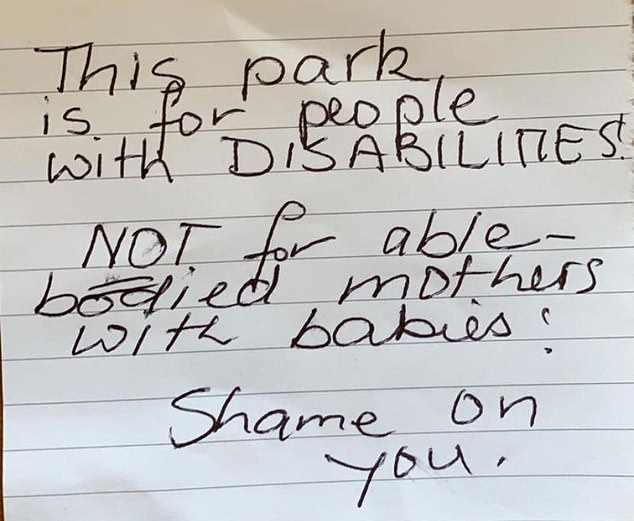 This park
is for people
with DISABILITIES!
NOT for able-
bodied mothers
with babies!
Shame on
you.